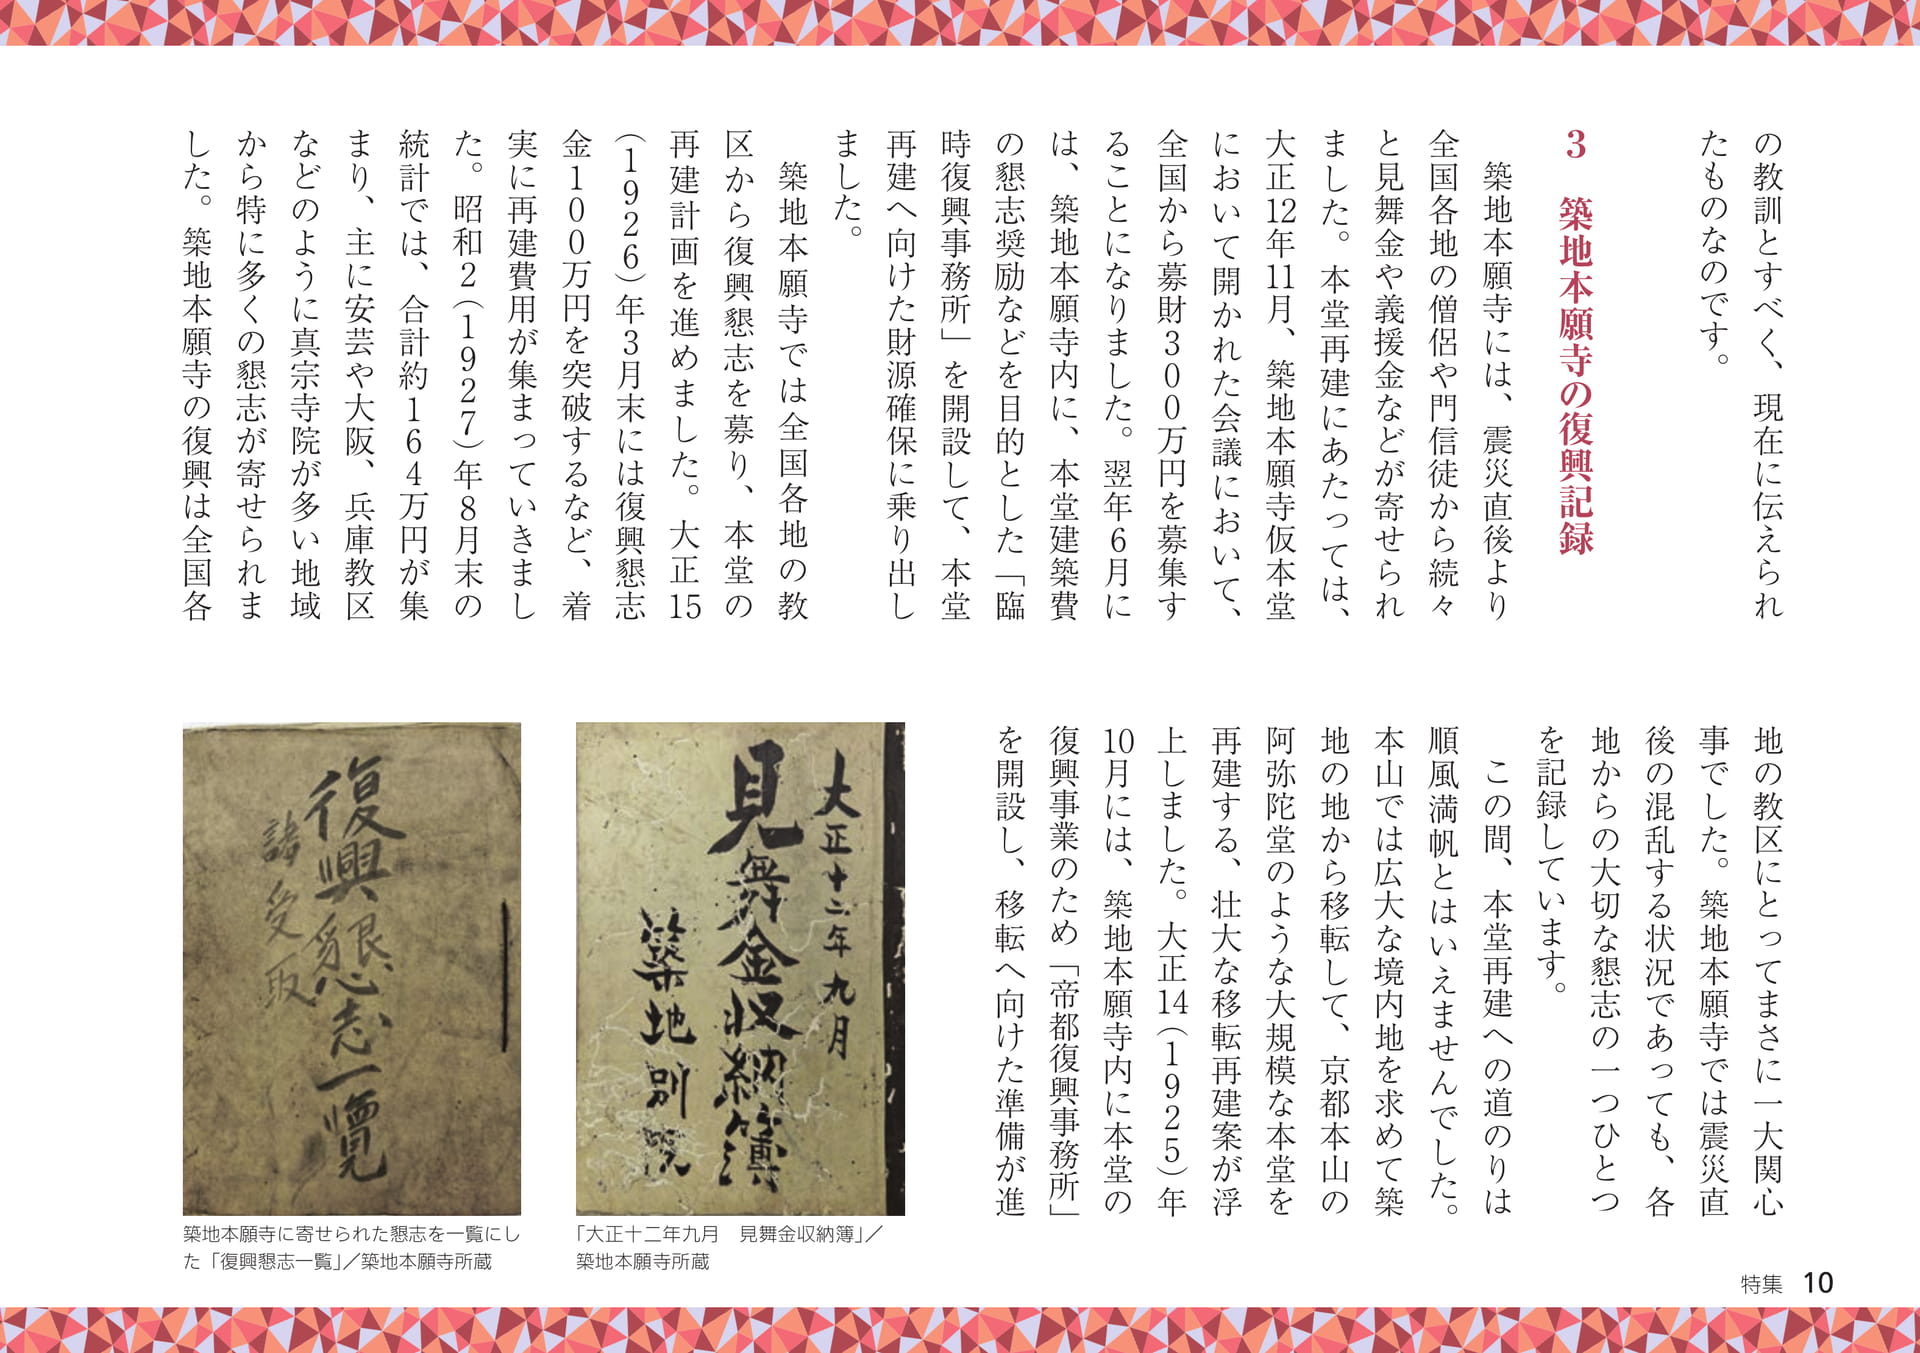 の教訓とすべく、現在に伝えられ
たものなのです。
3　築地本願寺の復興記録
　築地本願寺には、震災直後より
全国各地の僧侶や門信徒から続々
と見舞金や義援金などが寄せられ
ました。本堂再建にあたっては、
大正12年11月、築地本願寺仮本堂
において開かれた会議において、
全国から募財３００万円を募集す
ることになりました。翌年６月に
は、築地本願寺内に、本堂建築費
の懇志奨励などを目的とした「臨
時復興事務所」を開設して、本堂
再建へ向けた財源確保に乗り出し
ました。
　築地本願寺では全国各地の教
区から復興懇志を募り、本堂の
再建計画を進めました。大正15
（１９２６）年３月末には復興懇志
金１００万円を突破するなど、着
実に再建費用が集まっていきまし
た。昭和２（１９２７）年８月末の
統計では、合計約１６４万円が集
まり、主に安芸や大阪、兵庫教区
などのように真宗寺院が多い地域
から特に多くの懇志が寄せられま
した。築地本願寺の復興は全国各
地の教区にとってまさに一大関心
事でした。築地本願寺では震災直
後の混乱する状況であっても、各
地からの大切な懇志の一つひとつ
を記録しています。
　この間、本堂再建への道のりは
順風満帆とはいえませんでした。
本山では広大な境内地を求めて築
地の地から移転して、京都本山の
阿弥陀堂のような大規模な本堂を
再建する、壮大な移転再建案が浮
上しました。大正14（１９２５）年
10月には、築地本願寺内に本堂の
復興事業のため「帝都復興事務所」
を開設し、移転へ向けた準備が進
大正十二年九月
見舞金収納簿
築地別院
「大正十二年九月　見舞金収納簿」／
築地本願寺所蔵
復興懇志一覧
諸受取
築地本願寺に寄せられた懇志を一覧にし
た「復興懇志一覧」／築地本願寺所蔵
特集 10